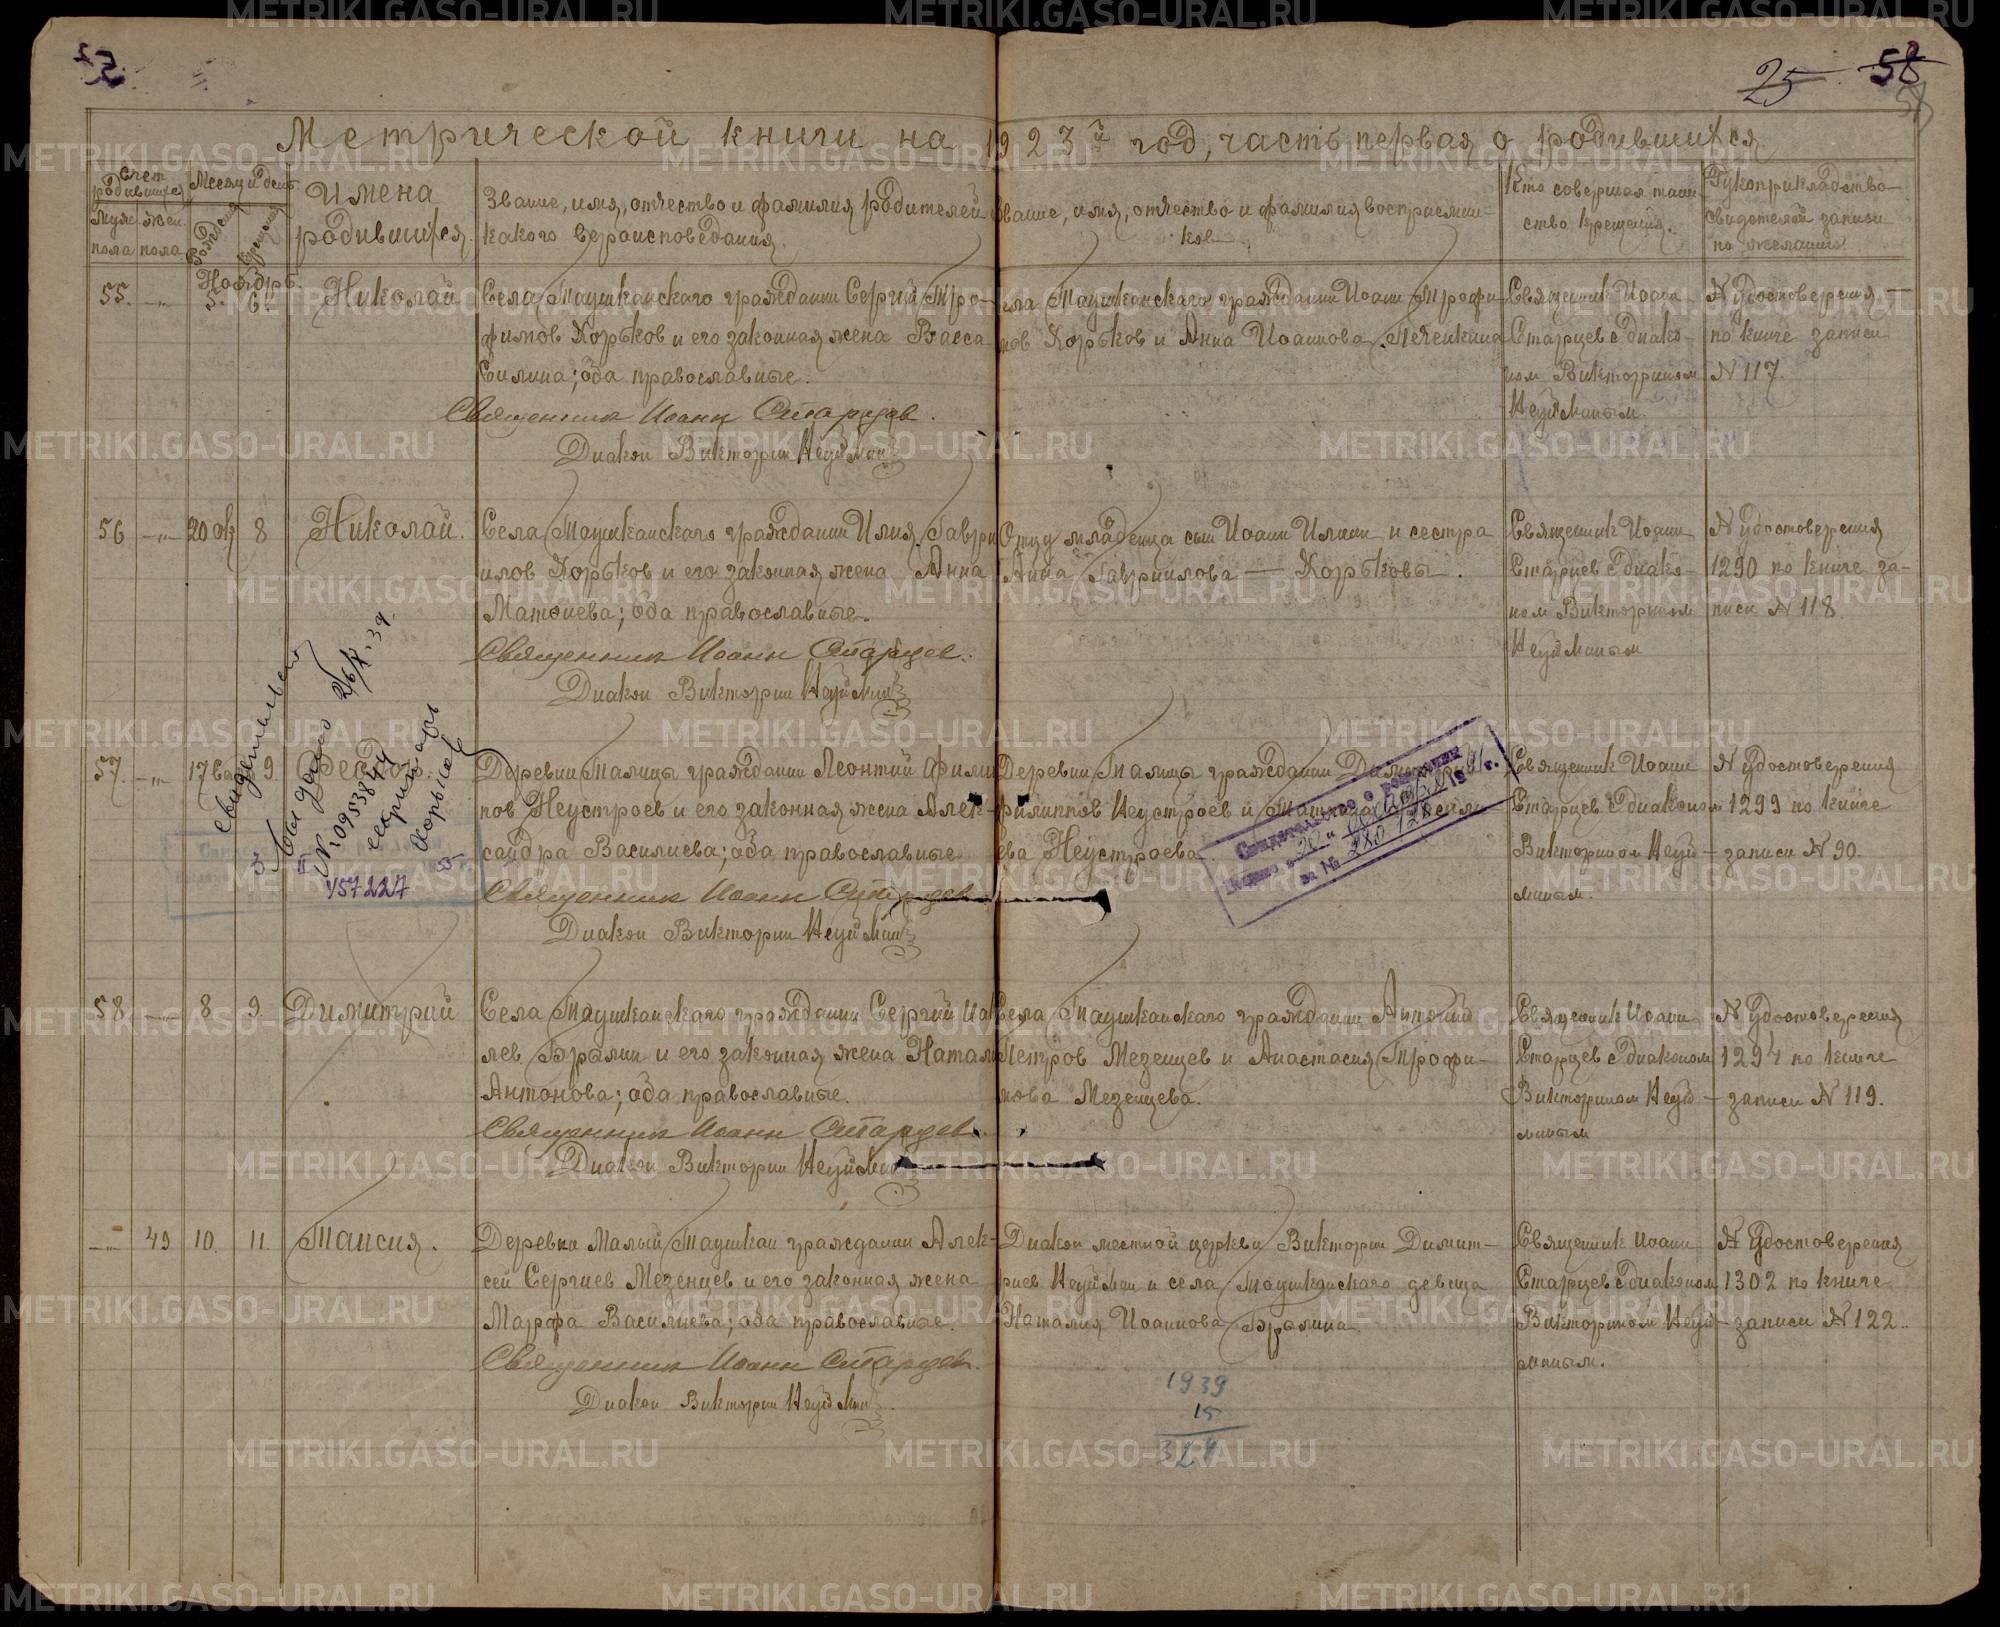 25 58
Метрической книги на 1923й год, часть первая о родившихся
Счет родившихся
Месяц и день
Имена родившихся.
Звание, имя, отчество и фамилия родителей
какого вероисповедания.
Звание, имя, отчество и фамилия восприемни-
ков.
Кто совершал таин
ство крещения.
Рукоприкладство
свидетелей записи
по желанию
муж пола
жен пола
рождения
крещения
Ноябрь.
55. —„— 5. 6. Николай
Села Таушканскаго гражданин Сергий Тро-
фимов Хорьков и его законная жена Васса
Силина; оба православные.
Священник Иоанн Старцев.
Диакон Викторин Неуймин
Села Таушканскаго гражданин Иоанн Трофи-
мов Хорьков и Анна Иоаннова Печенкина
Священник Иоанн
Старцев с диако-
ном Викторином
Неуйминым
№ удостоверения —
по книге записи
№ 117.
56 —„— 20 ок 8 Николай.
Села Таушканскаго гражданин Илия Гаври
илов Хорьков и его законная жена Анна
Матфиева; оба православные.
Священник Иоанн Старцев.
Диакон Викторин Неуймин
Отцу младенца сын Иоанн Илиин и сестра
Анна Гавриилова — Хорьковы.
Священник Иоанн
Старцев с диако-
ном Викторином
Неуйминым
№ удостоверения
1290 по книге за-
писи № 118.
57. —„— 9.
Деревни Талицы гражданин Леонтий Филип
пов Неустроев и его законная жена Алек-
сандра Василиева; оба православные
Священник Иоанн Старцев
Диакон Викторин Неуймин
Деревни Талицы гражданин Димитрий
Филиппов Неустроев и
ева Неустроева
Священник Иоанн
Старцев с диаконом
Викторином Неуй-
миным.
№ удостоверения
1299 по книге
записи № 90.
Свидетельство
выдано
№ 0953844
секретарь
У57227
Свидетельство о рождении
58 —„— 8 9. Димитрий
Села Таушканскаго гражданин Сергий Иак
лев Бралин и его законная жена Натали
Антонова; оба православные.
Священник Иоанн Старцев.
Диакон Викторин Неуймин
Села Таушканскаго гражданин Антоний
Петров Мезенцев и Анастасия Трофи-
мова Мезенцева.
Священник Иоанн
Старцев с диаконом
Викторином Неуй-
миным
№ удостоверения
1294 по книге
записи № 119.
—„— 49 10. 11. Таисия.
Деревни Малый Таушкан гражданин Алек-
сей Сергиев Мезенцев и его законная жена
Марфа Василиева; оба православные.
Священник Иоанн Старцев.
Диакон Викторин Неуймин.
Диакон местной церкви Викторин Димит-
риев Неуймин и села Таушканскаго девица
Наталия Иоаннова Бралина.
Священник Иоанн
Старцев с диаконом
Викторином Неуй-
миным.
№ удостоверения
1302 по книге
записи № 122.
1939
15
324
METRIKI.GASO-URAL.RU